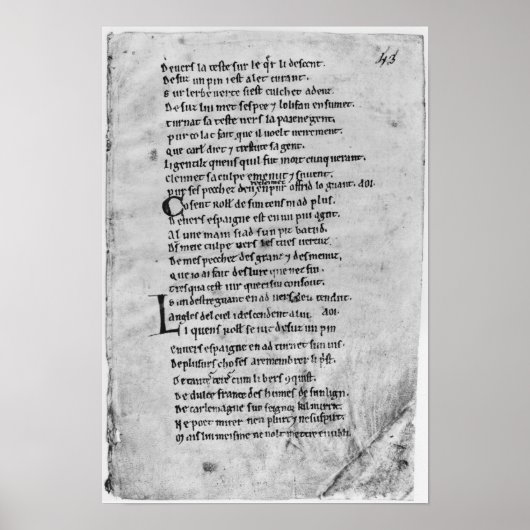 43
Devers la teste sur le q̃r li descent.
Desuz un pin i est alet curant.
Sur lerbe verte sest culchet adenz.
Desuz lui met sespee ⁊ lolifan ensumet.
turnat sa teste vers la paiene gent.
pur co lat fait que il voelt veirement.
Que carl̃ diet ⁊ trestute sa gent.
Li gentilz quens quil fut mort cunquerant.
Cleimet sa culpe e menut ⁊ suvent.
pur ses pecchez deu en puroffrid lo guant. aoi.
Co sent roll̃ de sun tens ni ad plus.
Devers espaigne est en un pui agut.
Al une main si ad sun piz batud.
D̃s meie culpe vers les tues vertuz.
De mes pecchez des granz ⁊ des menuz.
Que jo ai fait des lure que nez fui.
tresqua cest jur que ci sui consout.
Sun destre guant en ad vers deu tendut.
Angles del ciel i descendent a lui. aoi.
Li quens roll̃ se jut desuz un pin
Envers espaigne en ad turnet sun vis.
De plusurs choses a remembrer li p̃st.
De tantes teres cum li bers ꝯquist.
De dulce france des humes de sun lign.
De carlemagne sun seignor kil nurrit.
Ne poet muer nen plurt ⁊ ne suspirt.
Mais lui meisme ne volt metre en ubli.